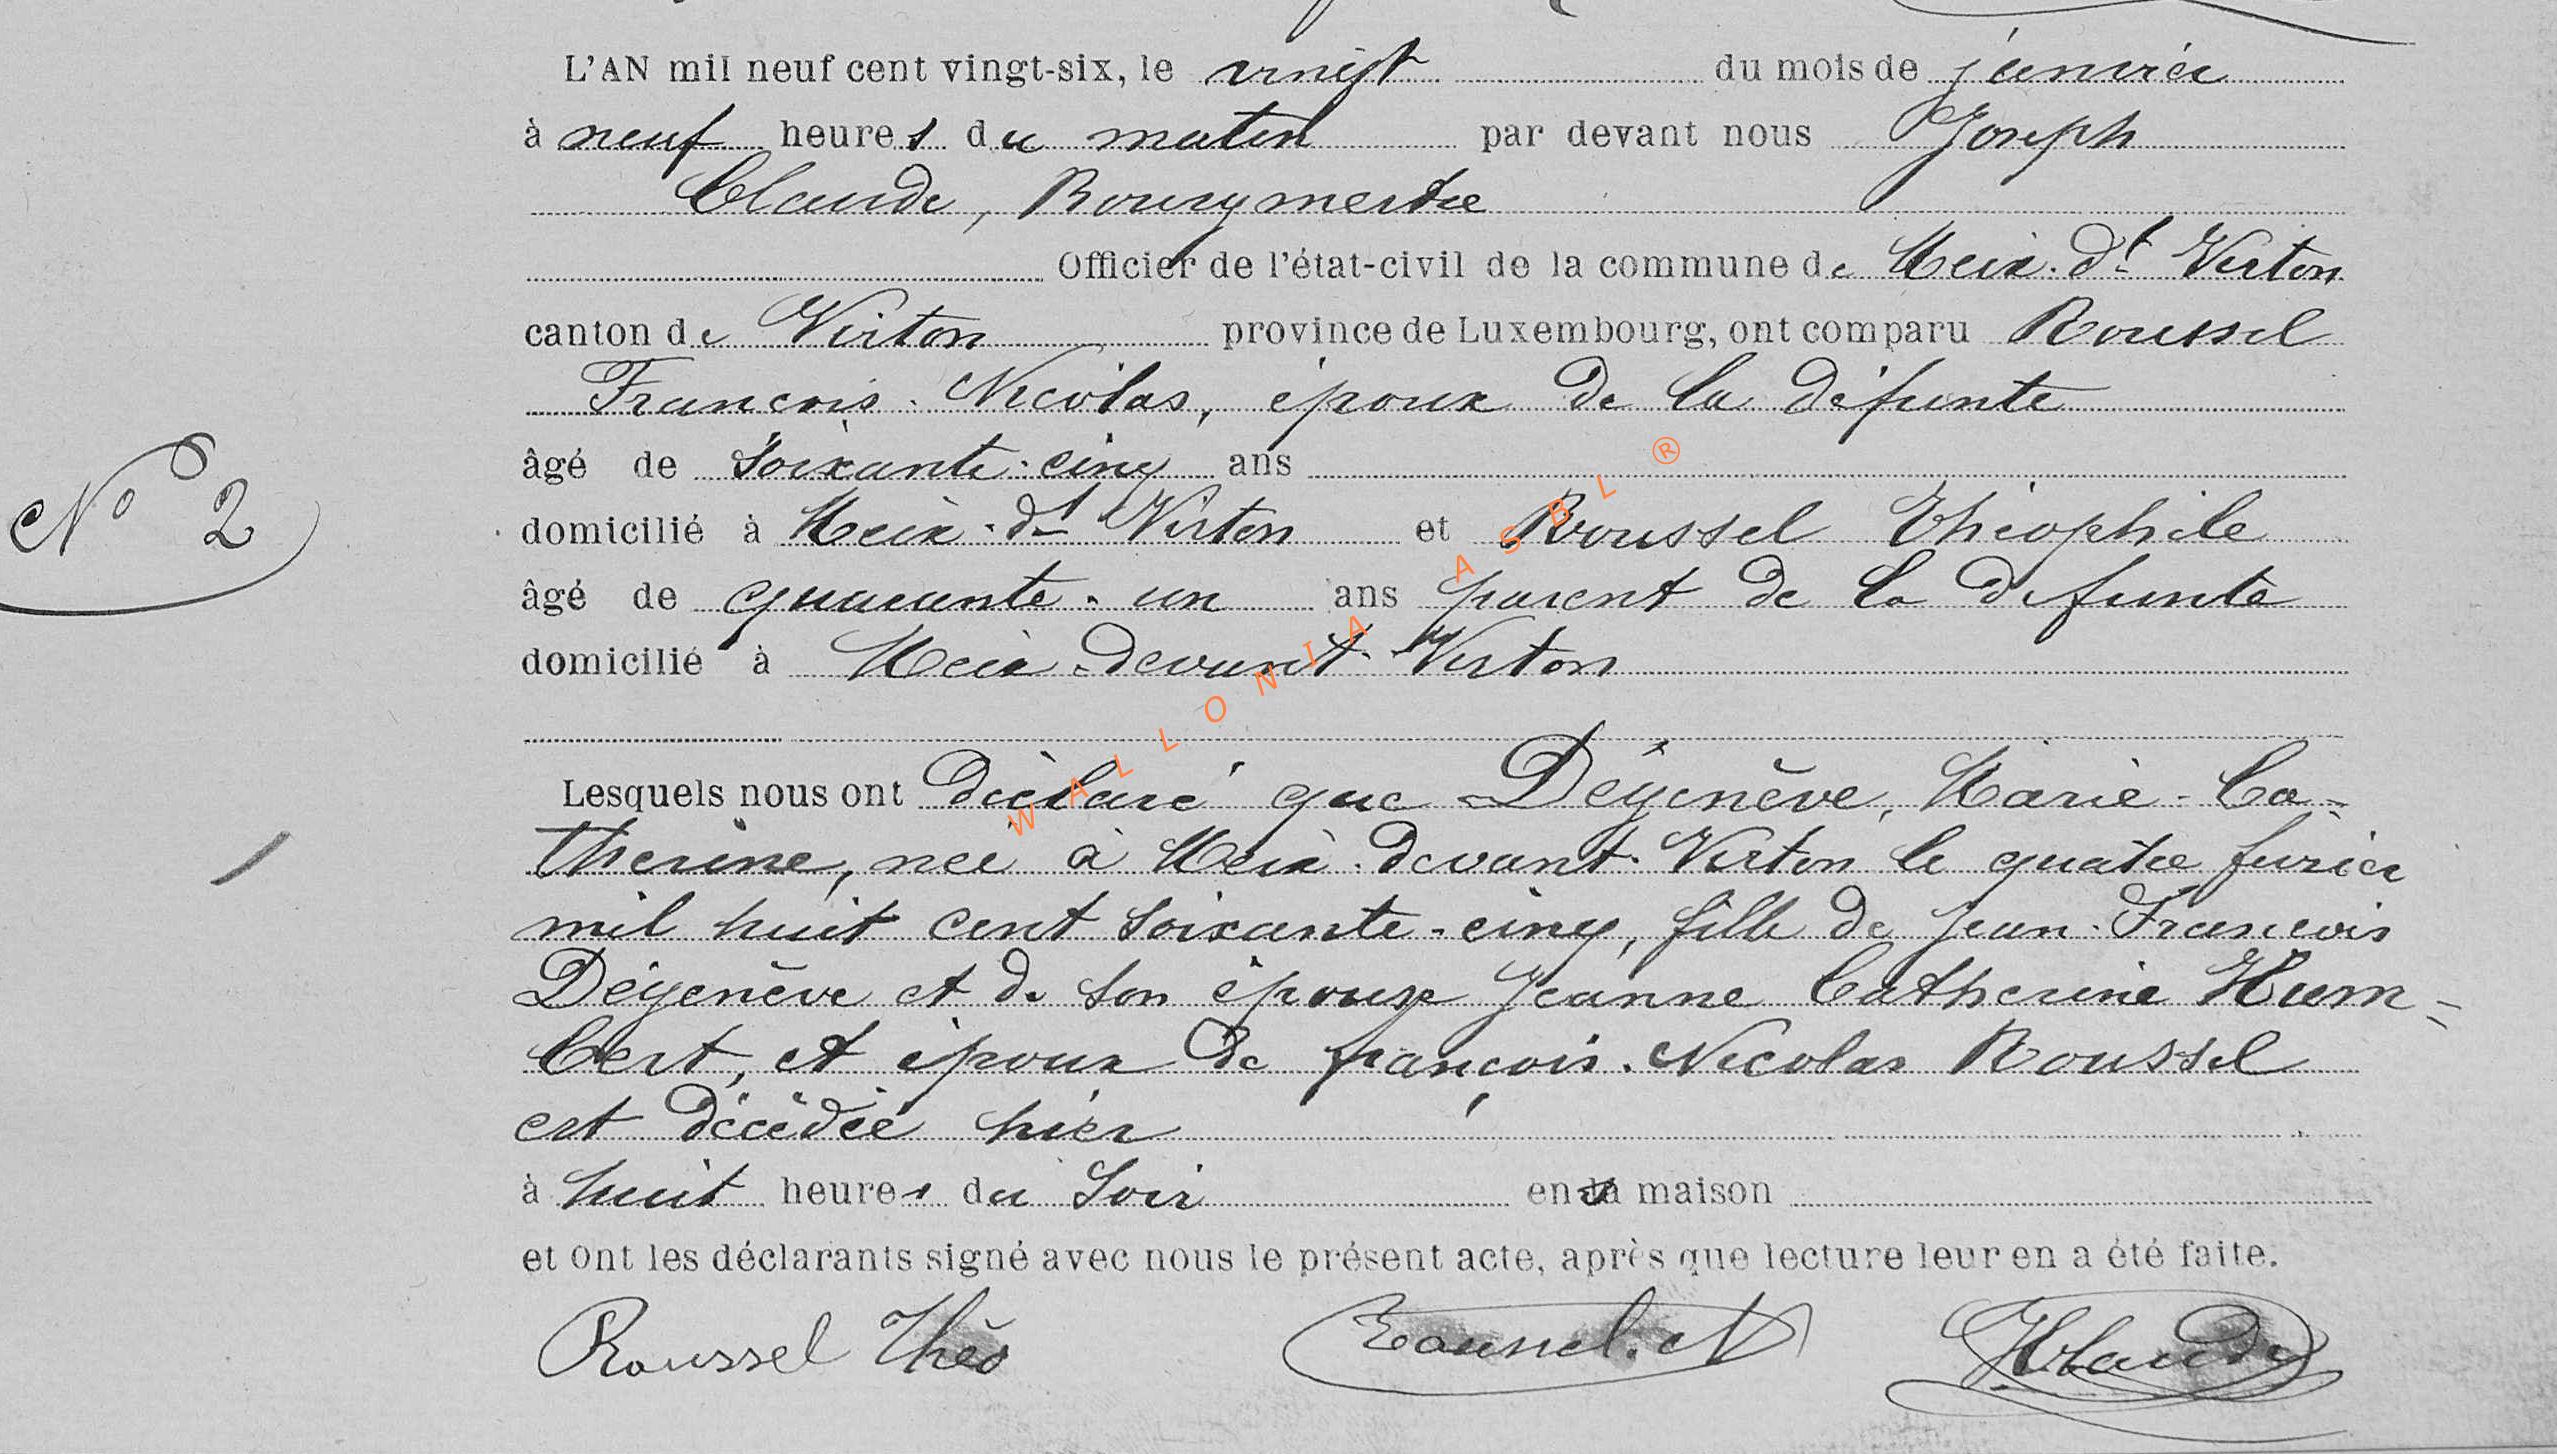 L'AN mil neuf cent vingt-six, le vingt du mois de janvier
à neuf heures du matin par devant nous Joseph
Claude, Bourgmestre
Officier de l'état-civil de la commune de Meix-dt Virton
canton de Virton province de Luxembourg, ont comparu Roussel
François-Nicolas, époux de la défunte
âgé de soixante-cinq ans
N° 2
domicilié à Meix-dt Virton et Roussel Théophile
âgé de quarante-un ans parent de la défunte
domicilié à Meix-devant-Virton
WALLONIA ASBL ®
Lesquels nous ont déclaré que Dégenève, Marie-Ca=
therine, née à Meix-devant-Virton le quatre février
mil huit cent soixante-cinq, fille de Jean-François
Dégenève et de son épouse Jeanne Catherine Hum=
bert, et époux de françois-Nicolas Roussel
est décédée hier
à huit heures du soir en sa maison
et ont les déclarants signé avec nous le présent acte, après que lecture leur en a été faite.
Roussel Théo Roussel. N JClaude